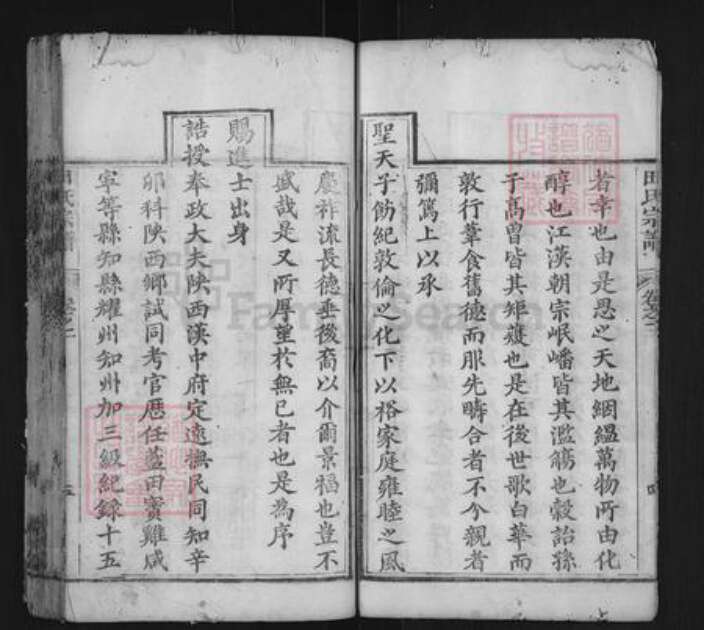 田氏宗譜
卷之二
者幸也由是思之天地絪縕萬物所由化
醇也江漢朝宗岷嶓皆其濫觴也穀詒孫
子高曾皆其矩矱也是在後世歌白華而
敦行葦食舊德而服先疇合者不分親者
彌篤上以承
聖天子飭紀敦倫之化下以裕家庭雍睦之風
慶祚流長德垂後裔以介爾景福也豈不
盛哉是又所厚望於無已者也是為序
賜進士出身
誥授奉政大夫陝西漢中府定遠撫民同知辛
卯科陝西鄉試同考官歷任藍田寶雞咸
寧等縣知縣耀州知州加三級紀錄十五
田氏宗譜
卷之二
五
FamilySearch